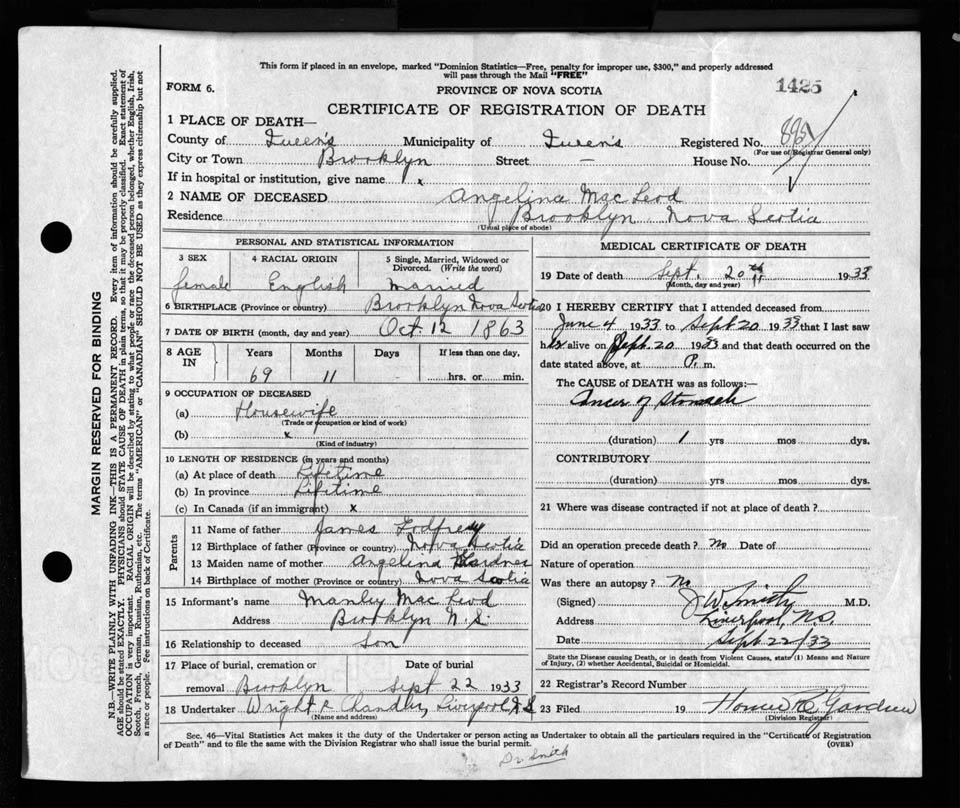 This form if placed in an envelope, marked "Dominion Statistics—Free, penalty for improper use, $300," and properly addressed
will pass through the Mail "FREE"
FORM 6.
PROVINCE OF NOVA SCOTIA
1425
CERTIFICATE OF REGISTRATION OF DEATH
1 PLACE OF DEATH—
County of Queen's Municipality of Queen's Registered No.
(For use of Registrar General only)
City or Town Brooklyn Street — House No.
If in hospital or institution, give name x
2 NAME OF DECEASED Angelina MacLeod
Residence Brooklyn Nova Scotia
(Usual place of abode)
PERSONAL AND STATISTICAL INFORMATION
3 SEX 4 RACIAL ORIGIN 5 Single, Married, Widowed or
Divorced. (Write the word)
female English Married
6 BIRTHPLACE (Province or country) Brooklyn Nova Scotia
7 DATE OF BIRTH (month, day and year) Oct 12 1863
8 AGE IN Years Months Days If less than one day,
69 11 - hrs. or min.
9 OCCUPATION OF DECEASED
(a) Housewife
(Trade or occupation or kind of work)
(b) x
(Kind of industry)
10 LENGTH OF RESIDENCE (in years and months)
(a) At place of death Lifetime
(b) In province Lifetime
(c) In Canada (if an immigrant) x
Parents
11 Name of father James Godfrey
12 Birthplace of father (Province or country) Nova Scotia
13 Maiden name of mother Angelina Gardner
14 Birthplace of mother (Province or country) Nova Scotia
15 Informant's name Manley MacLeod
Address Brooklyn N.S.
16 Relationship to deceased Son
17 Place of burial, cremation or Date of burial
removal Brooklyn Sept 22 1933
18 Undertaker Wright & Chandler, Liverpool N S
(Name and address)
MEDICAL CERTIFICATE OF DEATH
19 Date of death Sept. 20th 1933
(Month, day and year)
20 I HEREBY CERTIFY that I attended deceased from
June 4 1933 to Sept 20 1933 that I last saw
her alive on Sept. 20 1933 and that death occurred on the
date stated above, at P. m.
The CAUSE OF DEATH was as follows:—
Cancer of Stomach
(duration) 1 yrs mos dys.
CONTRIBUTORY
(duration) yrs. mos. dys.
21 Where was disease contracted if not at place of death?
Did an operation precede death? No Date of
Nature of operation
Was there an autopsy? No
(Signed) J W Smith M.D.
Address Liverpool, N.S.
Date Sept 22/33
State the Disease causing Death, or in death from Violent Causes, state (1) Means and Nature
of Injury, (2) whether Accidental, Suicidal or Homicidal.
22 Registrar's Record Number
23 Filed 19 Homer R. Gardner
(Division Registrar)
Sec. 46—Vital Statistics Act makes it the duty of the Undertaker or person acting as Undertaker to obtain all the particulars required in the "Certificate of Registration
of Death" and to file the same with the Division Registrar who shall issue the burial permit. (OVER)
Dr. Smith
MARGIN RESERVED FOR BINDING
N.B.—WRITE PLAINLY WITH UNFADING INK—THIS IS A PERMANENT RECORD. Every item of information should be carefully supplied.
AGE should be stated EXACTLY. PHYSICIANS should STATE CAUSE OF DEATH in plain terms, so that it may be properly classified. Exact statement of
OCCUPATION is very important. RACIAL ORIGIN will be described by stating to what people or race the deceased person belonged, whether English, Irish,
Scotch, French, German, Russian, Ruthenian, etc. The terms "AMERICAN" or "CANADIAN" SHOULD NOT BE USED as they express citizenship but not
a race or people. See instructions on back of Certificate.